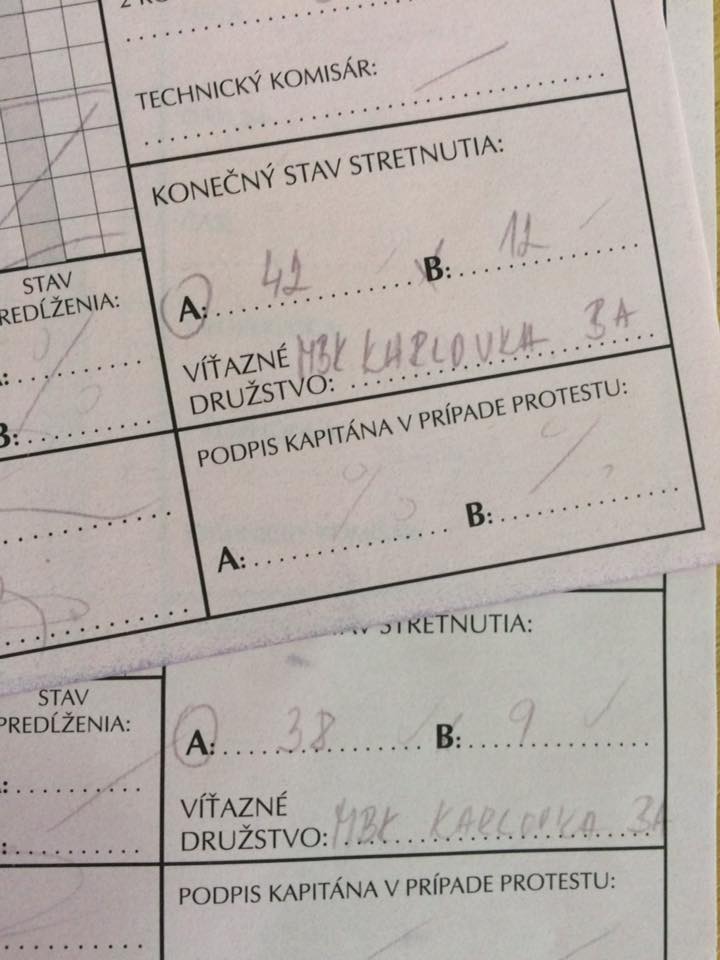 TECHNICKÝ KOMISÁR:
KONEČNÝ STAV STRETNUTIA:
STAV
REDĹŽENIA:
A: 42 B: 12
VÍŤAZNÉ
DRUŽSTVO: MBK KARLOVKA BA
B:
PODPIS KAPITÁNA V PRÍPADE PROTESTU:
A: B:
STRETNUTIA:
STAV
PREDĹŽENIA:
A: 38 B: 9
VÍŤAZNÉ
DRUŽSTVO: MBK KARLOVKA BA
PODPIS KAPITÁNA V PRÍPADE PROTESTU: